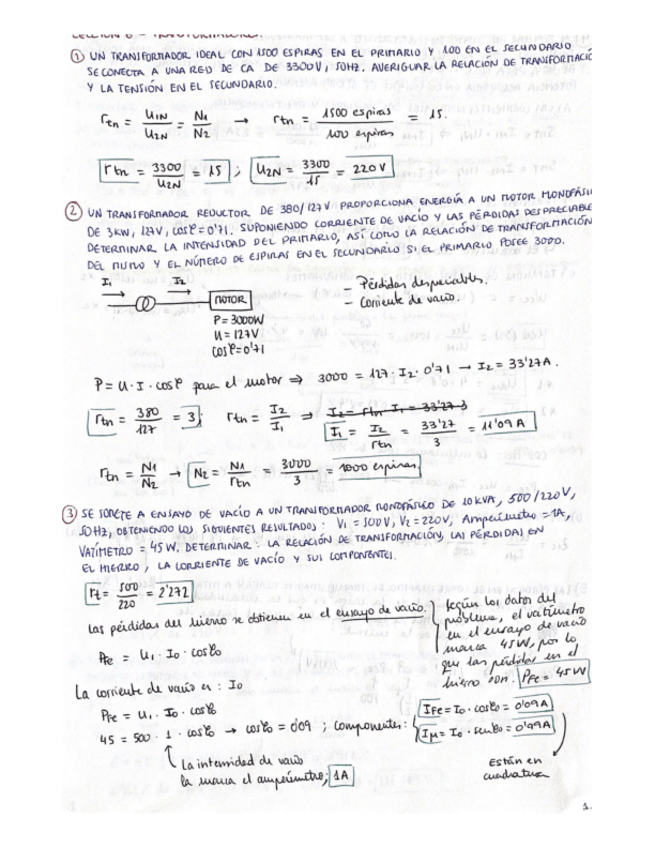 LECCIÓN 6 - TRANSFORMADORES.
① UN TRANSFORMADOR IDEAL CON 1500 ESPIRAS EN EL PRIMARIO Y 100 EN EL SECUNDARIO
SE CONECTA A UNA RED DE CA DE 3300V, 50HZ. AVERIGUAR LA RELACIÓN DE TRANSFORMACIÓ
Y LA TENSIÓN EN EL SECUNDARIO.
rtn = U1N/U2N = N1/N2 → rtn = 1500 espiras/100 espiras = 15.
rtn = 3300/U2N = 15 ; U2N = 3300/15 = 220 V
② UN TRANSFORMADOR REDUCTOR DE 380/127 V PROPORCIONA ENERGÍA A UN MOTOR MONOFÁSI
DE 3KW, 127V, cosφ=0'71. SUPONIENDO CORRIENTE DE VACÍO Y LAS PÉRDIDAS DESPRECIABLE
DETERMINAR LA INTENSIDAD DEL PRIMARIO, ASÍ COMO LA RELACIÓN DE TRANSFORMACIÓN
DEL MISMO Y EL NÚMERO DE ESPIRAS EN EL SECUNDARIO SI EL PRIMARIO POSEE 3000.
I1 I2
MOTOR
P = 3000W
U = 127V
cosφ=0'71
- Pérdidas despreciables.
- Corriente de vacío.
P = U · I · cosφ para el motor ⇒ 3000 = 127 · I2 · 0'71 → I2 = 33'27A.
rtn = 380/127 = 3; rtn = I2/I1 ⇒ I2 = rtn · I1 = 33'27·3
I1 = I2/rtn = 33'27/3 = 11'09 A
rtn = N1/N2 → N2 = N1/rtn = 3000/3 = 1000 espiras.
③ SE SOMETE A ENSAYO DE VACÍO A UN TRANSFORMADOR MONOFÁSICO DE 10KVA, 500/220V,
50HZ, OBTENIENDO LOS SIGUIENTES RESULTADOS: V1 = 500V, V2 = 220V, Amperímetro = 1A,
VATÍMETRO = 45 W. DETERMINAR: LA RELACIÓN DE TRANSFORMACIÓN, LAS PÉRDIDAS EN
EL HIERRO, LA CORRIENTE DE VACÍO Y SUS COMPONENTES.
rt = 500/220 = 2'272
Las pérdidas del hierro se obtienen en el ensayo de vacío.
PFe = U1 · I0 · cosφ0
Según los datos del
problema, el vatímetro
en el ensayo de vacío
marca 45W, por lo
que las pérdidas en el
hierro son. PFe = 45 W
La corriente de vacío es: I0
PFe = U1 · I0 · cosφ0
45 = 500 · 1 · cosφ0 → cosφ0 = 0'09 ; componentes:
IFe = I0 · cosφ0 = 0'09A
Iμ = I0 · senφ0 = 0'99A
La intensidad de vacío
la marca el amperímetro; 1A
Están en
cuadratura
1.